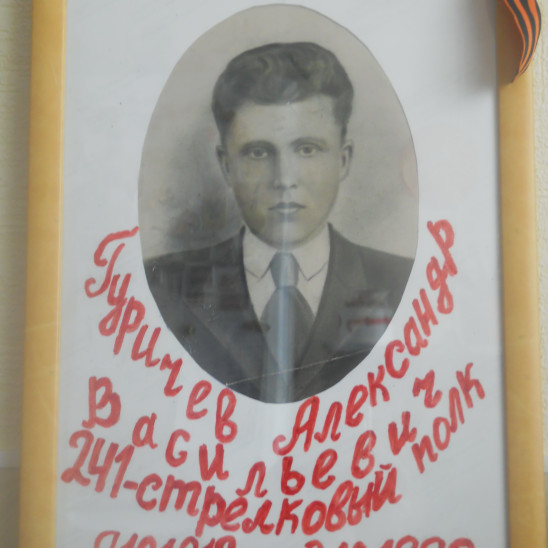 Гуричев Александр
Васильевич
241-стрелковый полк